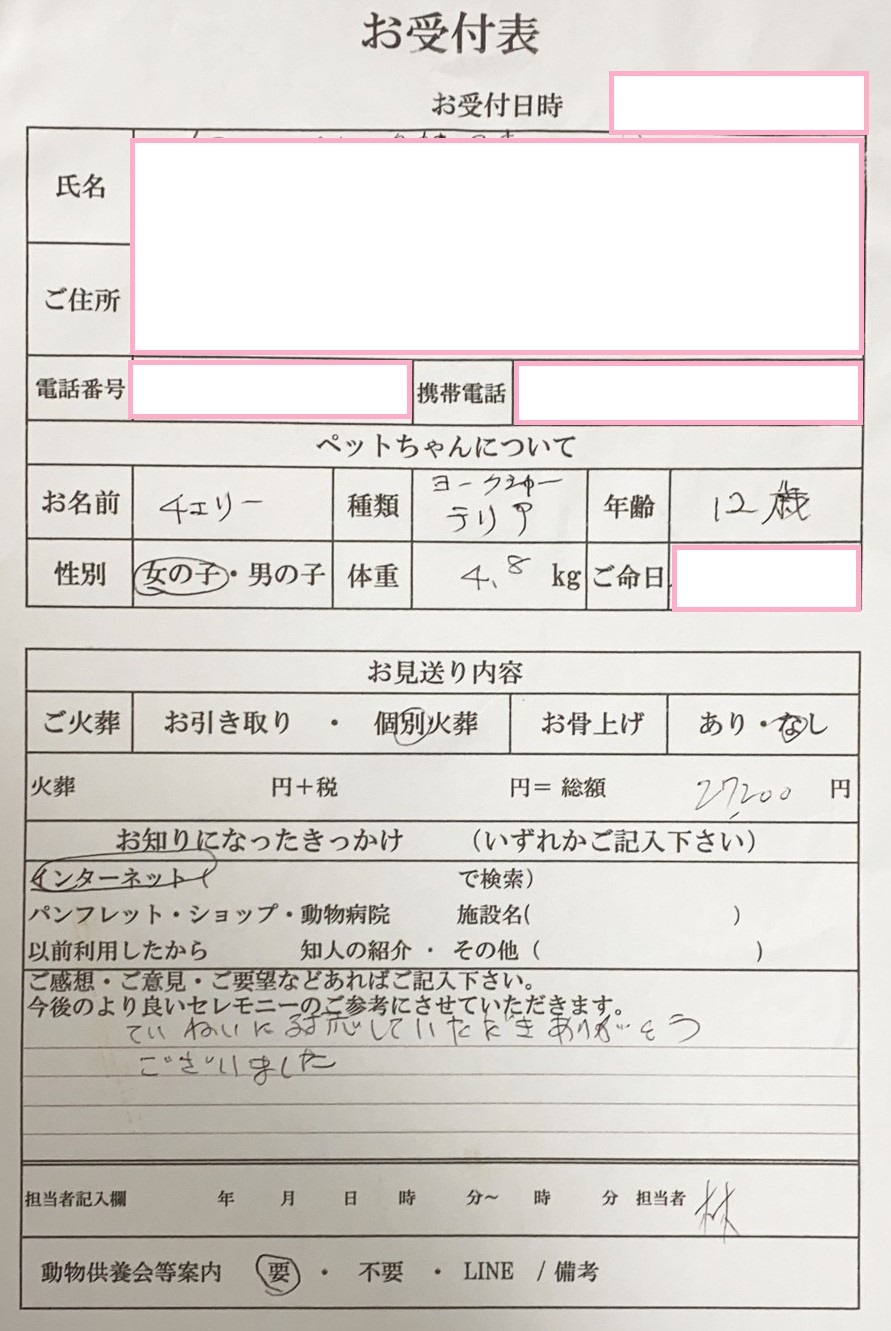 お受付表
お受付日時
氏名
ご住所
電話番号 携帯電話
ペットちゃんについて
お名前 チェリー 種類 ヨークシャー テリア 年齢 12歳
性別 女の子・男の子 体重 4.8 kg ご命日
お見送り内容
ご火葬 お引き取り ・ 個別火葬 お骨上げ あり・なし
火葬 円＋税 円＝ 総額 27,200 円
お知りになったきっかけ （いずれかご記入下さい）
インターネット( で検索)
パンフレット・ショップ・動物病院 施設名( )
以前利用したから 知人の紹介 ・ その他 ( )
ご感想・ご意見・ご要望などあればご記入下さい。
今後のより良いセレモニーのご参考にさせていただきます。
ていねいに対応していただきありがとう
ございました
担当者記入欄 年 月 日 時 分～ 時 分 担当者 林
動物供養会等案内 要 ・ 不要 ・ LINE / 備考